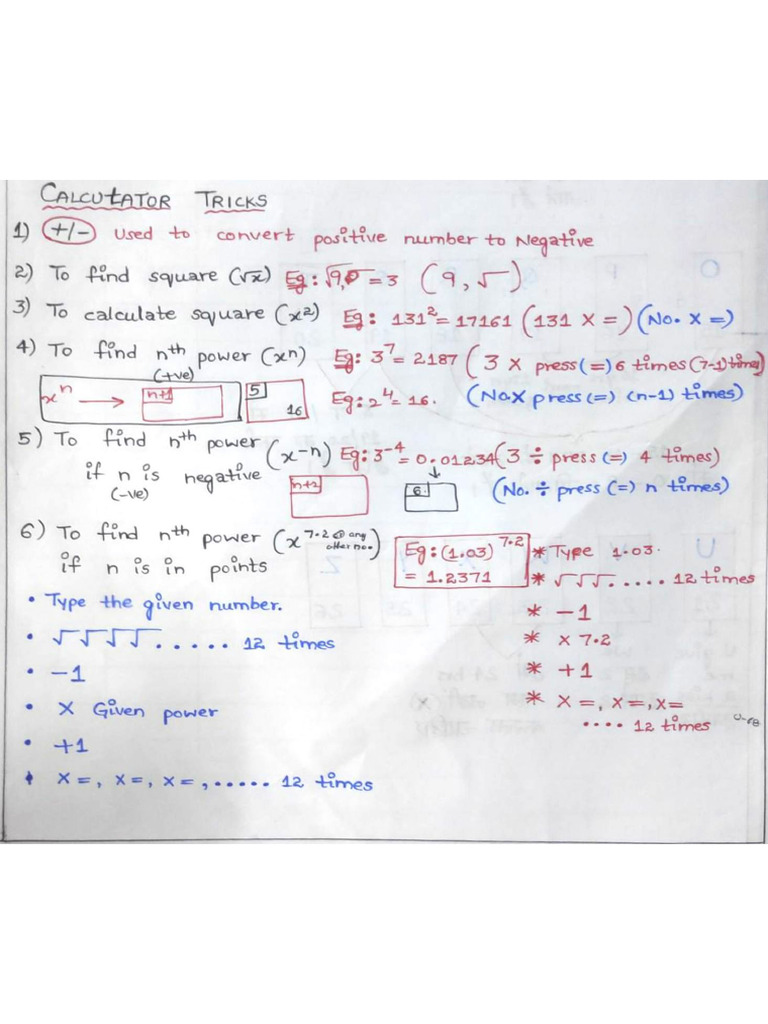 CALCUtATOR TRICKS
1) +/- used to convert positive number to Negative
2) To find square (√x) Eg: √9, = 3 (9, √)
3) To calculate square (x²) Eg: 131² = 17161 (131 X =) (No. X =)
4) To find nth power (xⁿ) Eg: 3⁷ = 2187 ( 3 X press (=) 6 times (7-1) times)
(+ve)
xⁿ → n+1 5 16 Eg: 2⁴ = 16. (No.X press (=) (n-1) times)
5) To find nth power (x-n) Eg: 3⁻⁴ = 0.01234 (3 ÷ press (=) 4 times)
if n is negative
(-ve) n+2 6. (No. ÷ press (=) n times)
6) To find nth power (x 7.2 @ any other no.)
if n is in points
Eg: (1.03) 7.2
= 1.2371
* Type 1.03.
* √√√..... 12 times
* -1
* x 7.2
* +1
* X =, X =, X =
.... 12 times
• Type the given number.
• √√√√..... 12 times
• -1
• X Given power
• +1
• X =, X =, X =, ..... 12 times